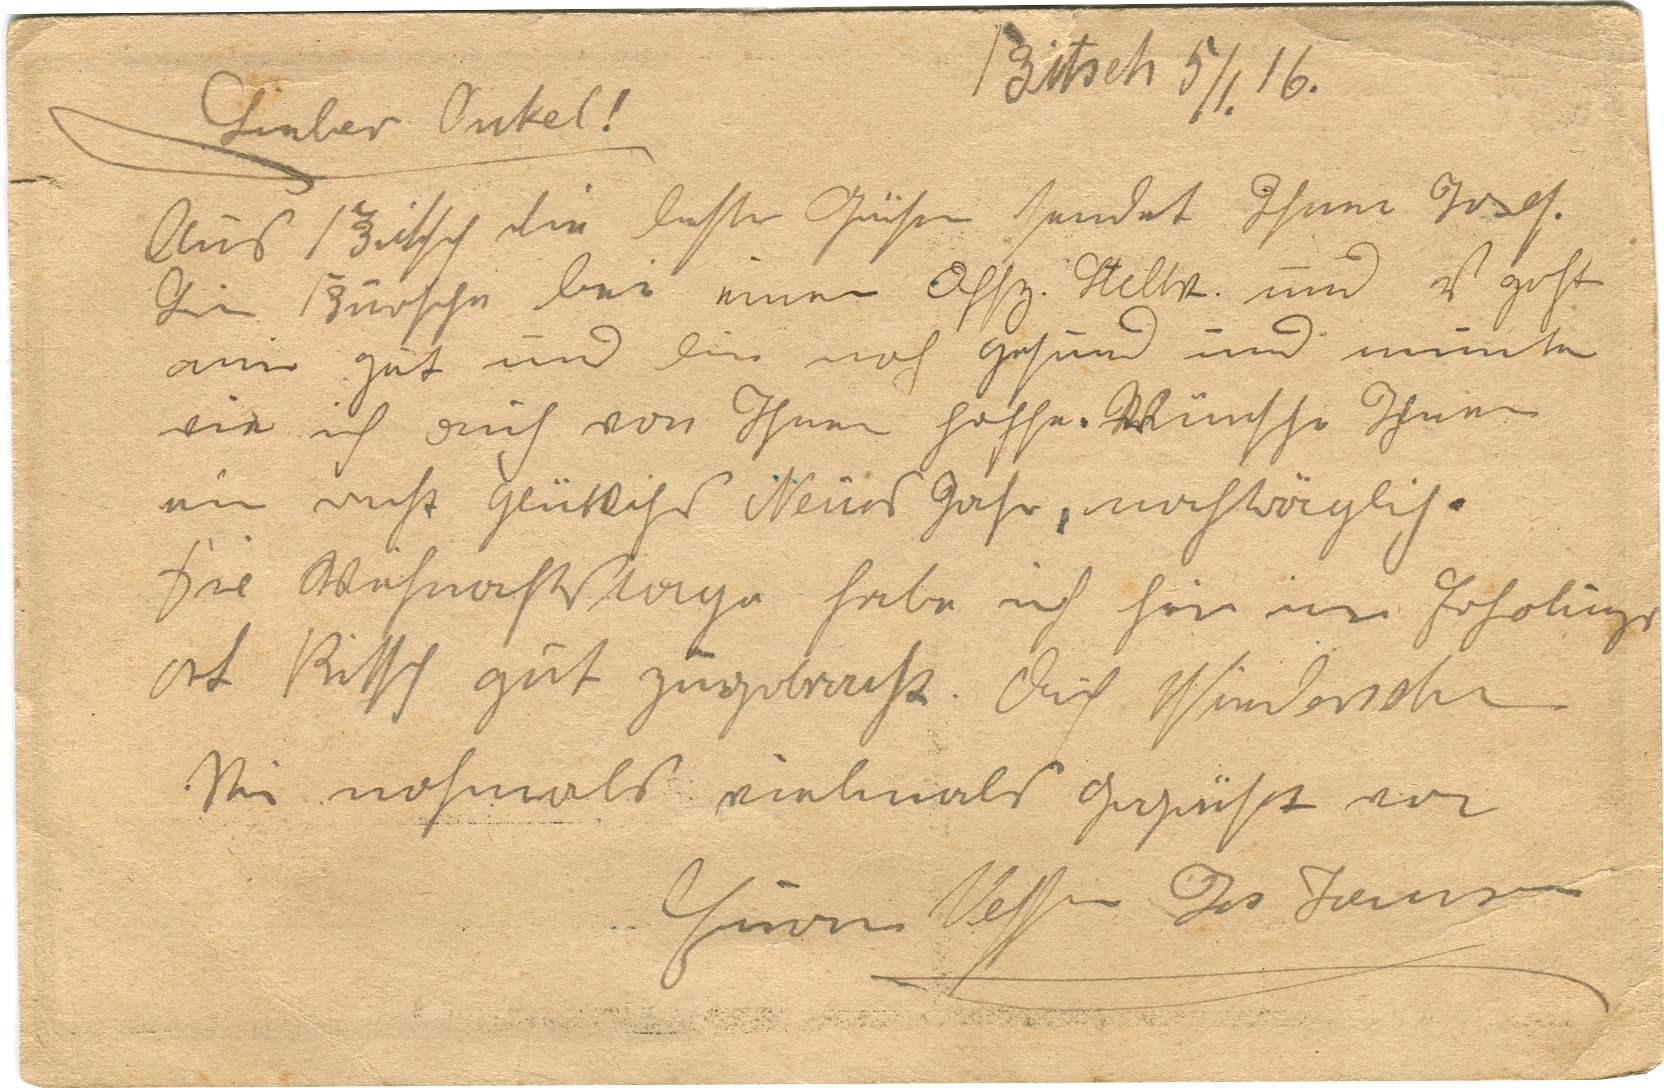 Bitsch 5/1. 16.
Lieber Onkel!
Aus Bitsch die beste Grüße sendet Ihnen Josef.
Bin Bursche bei einen Offz. Stellv. und es geht
mir gut und bin noch gesund und munter
wie ich auch von Ihnen hoffe. Wünsche Ihnen
ein recht glükliches Neues Jahr, nachträglich.
Die Weihnachtstage habe ich hier im Erholungs
ort Bittsch gut zugebracht. Auf Wiedersehn
Sei nochmals vielmals gegrüßt von
Ihren Neffen Jos